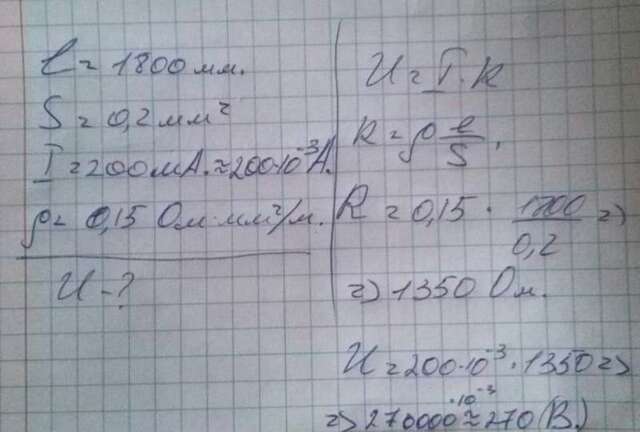 l = 1800 мм.
S = 0,2 мм²
I = 200 мА. ≈ 200·10⁻³ А.
ρ = 0,15 Ом·мм²/м.
U - ?
U = I·R
R = ρ l/S,
R = 0,15 · 1800/0,2 =>
=> 1350 Ом.
U = 200·10⁻³ · 1350 =>
=> 270000·10⁻³ ≈ 270 (В.)